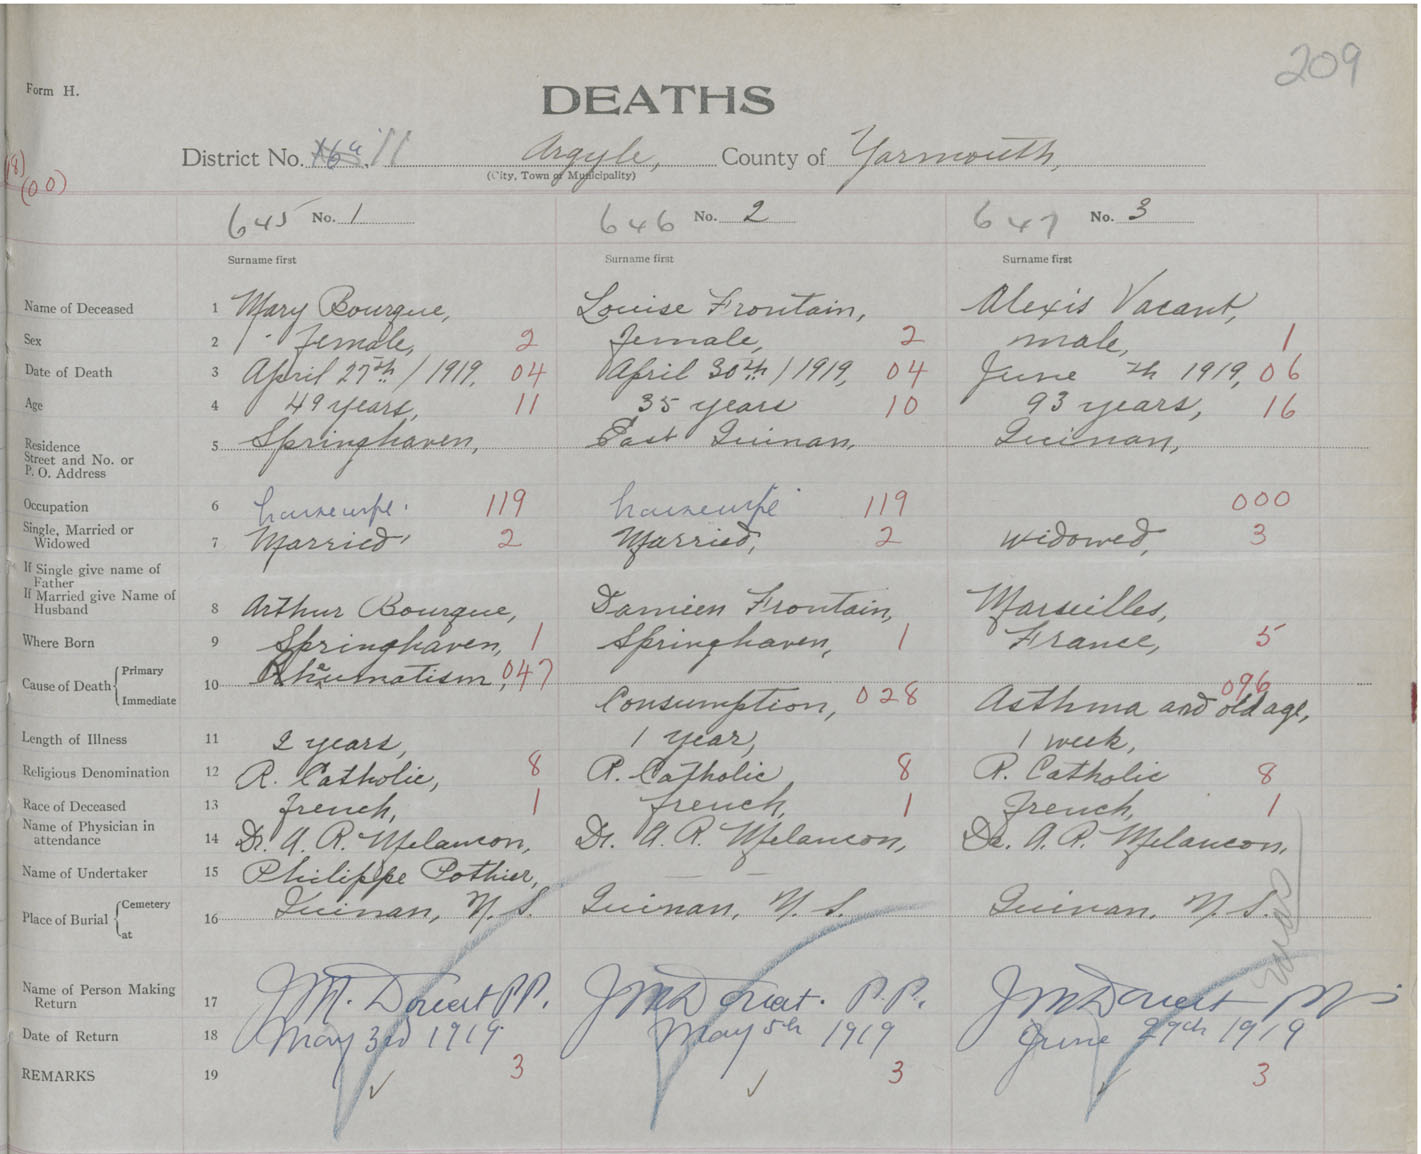 209
Form H.
DEATHS
District No. 16a 11 Argyle, County of Yarmouth,
(City, Town or Municipality)
(8)
(00)
645 No. 1 646 No. 2 647 No. 3
Surname first Surname first Surname first
Name of Deceased 1 Mary Bourque, Louise Frontain, Alexis Vacant,
Sex 2 female, 2 female, 2 male, 1
Date of Death 3 April 27th / 1919, 04 April 30th / 1919, 04 June th 1919, 06
Age 4 49 years, 11 35 years 10 93 years, 16
Residence
Street and No. or
P. O. Address 5 Springhaven, East Quinan, Quinan,
Occupation 6 housewife 119 housewife 119 000
Single, Married or
Widowed 7 Married 2 Married, 2 widowed, 3
If Single give name of
Father
If Married give Name of
Husband 8 Arthur Bourque, Damien Frontain, Marseilles,
Where Born 9 Springhaven, 1 Springhaven, 1 France, 5
Cause of Death Primary
Immediate 10 Rheumatism, 047 Consumption, 028 Asthma and old age, 096
Length of Illness 11 2 years, 1 year, 1 week,
Religious Denomination 12 R. Catholic, 8 R. Catholic 8 R. Catholic 8
Race of Deceased 13 french, 1 french, 1 french, 1
Name of Physician in
attendance 14 Dr. A. R. Melancon, Dr. A. R. Melancon, Dr. A. R. Melancon,
Name of Undertaker 15 Philippe Pothier,
Place of Burial Cemetery
at 16 Quinan, N. S. Quinan, N. S. Quinan, N. S.
Name of Person Making
Return 17 P.P. P.P.
Date of Return 18 May 3rd 1919 May 5th 1919 June 29th 1919
REMARKS 19 3 3 3